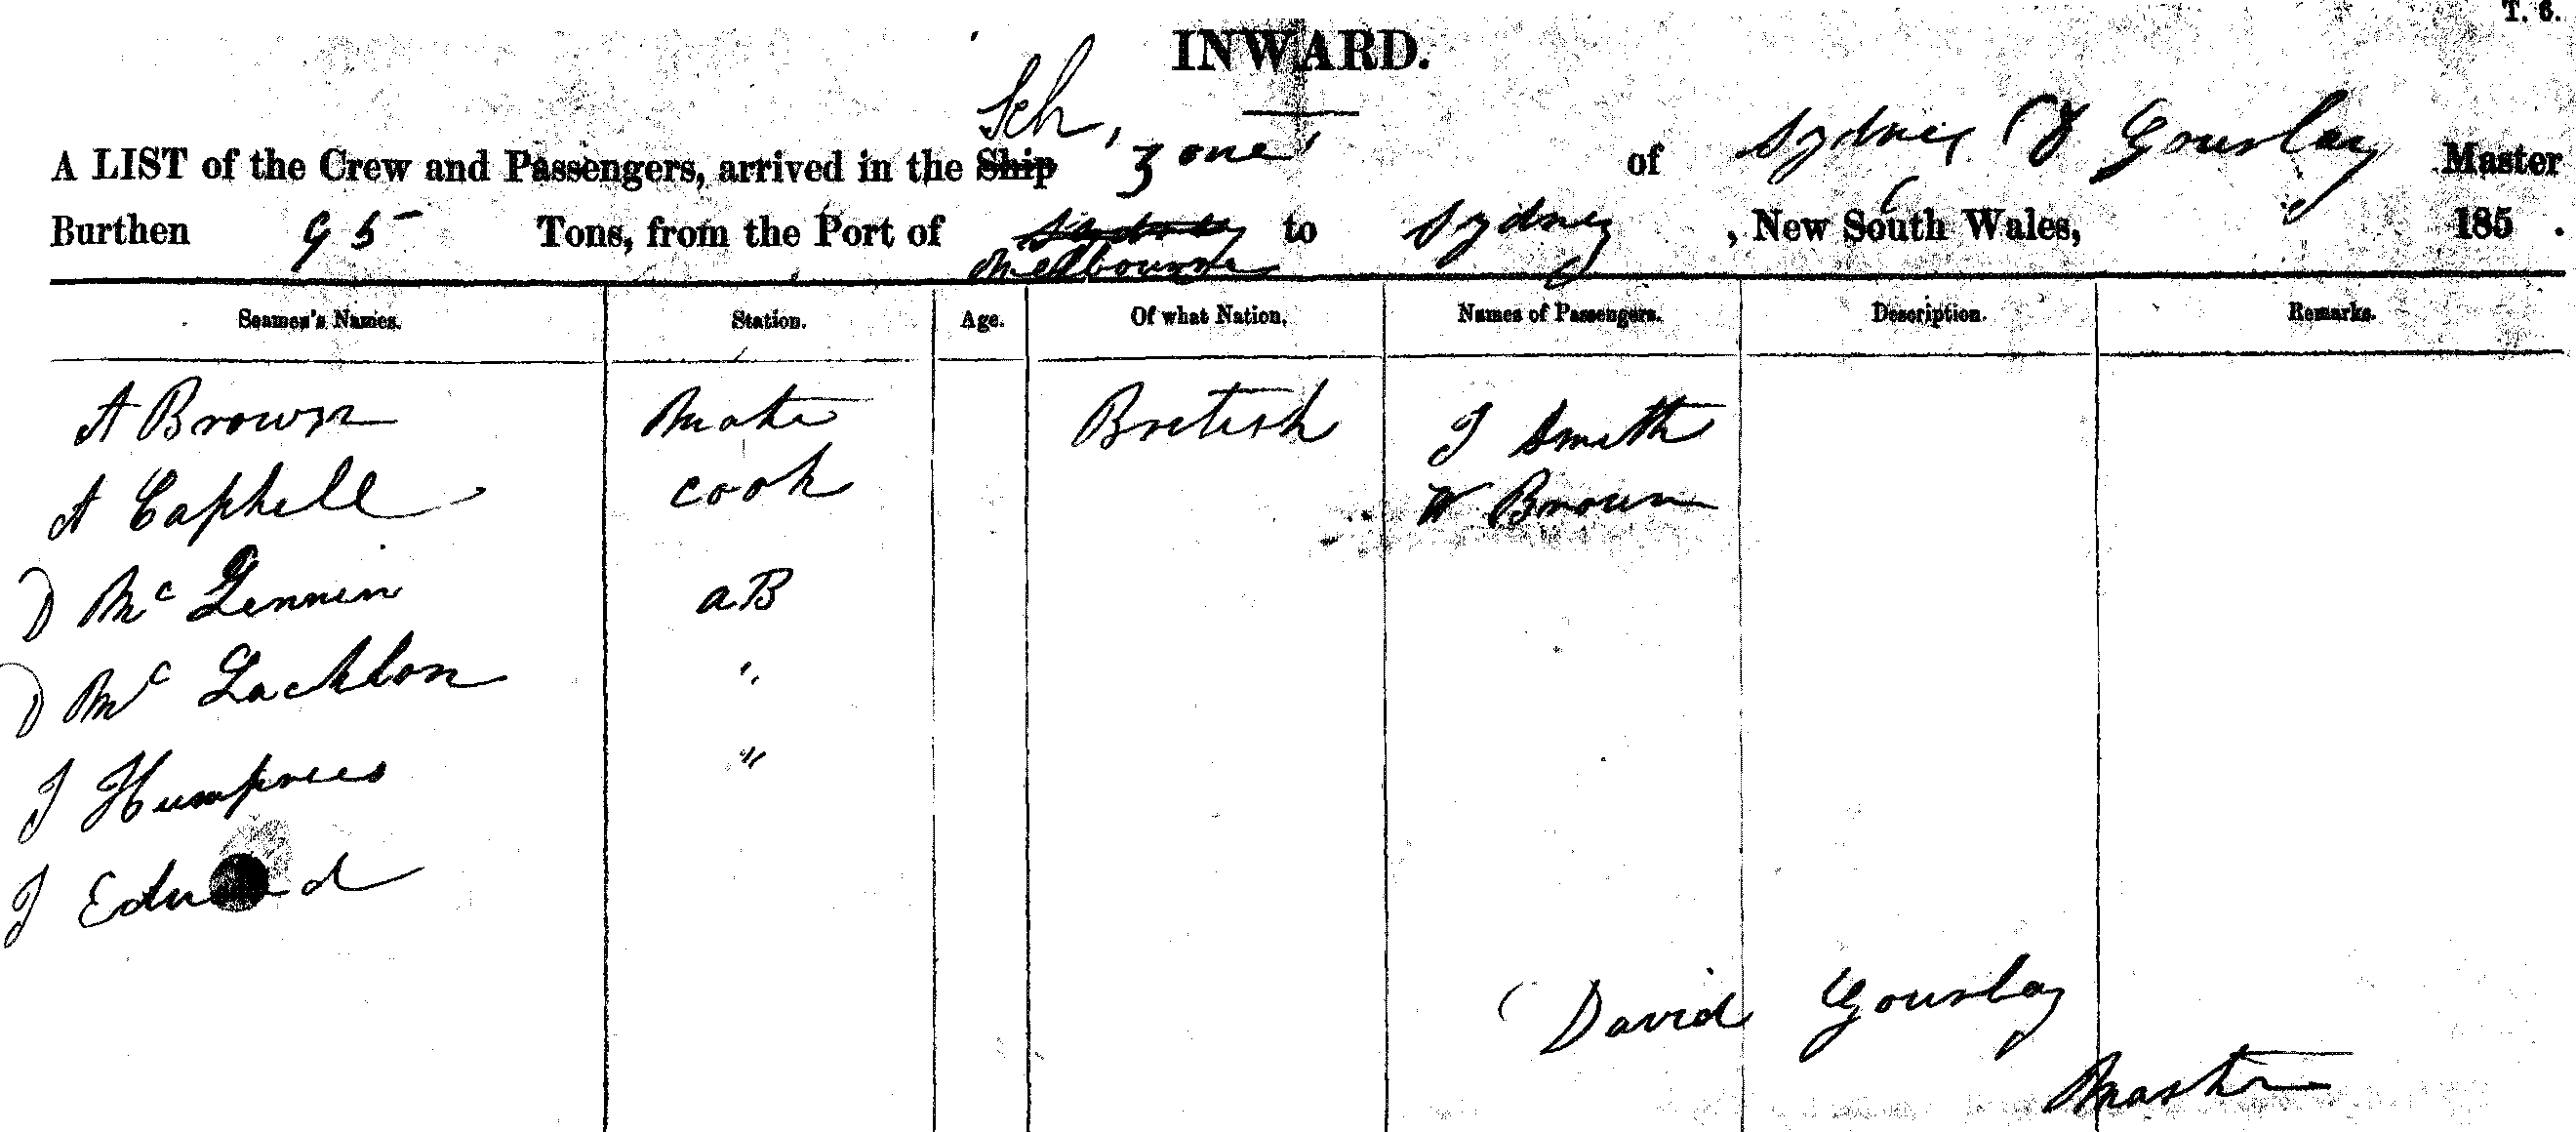 T. 6.
INWARD.
Sch,
A LIST of the Crew and Passengers, arrived in the Ship Zone of Sydney D Gourlay Master
Burthen 95 Tons, from the Port of Sydney to Sydney, New South Wales, 185 .
Melbourne
Seamen's Names. Station. Age. Of what Nation. Names of Passengers. Description. Remarks.
A Brown Mate British J Smith
A Caphell cook W Brown
D Mc Lennin aB
D Mc Lachlon "
J Humpries "
J Edward
David Gourlay
Master